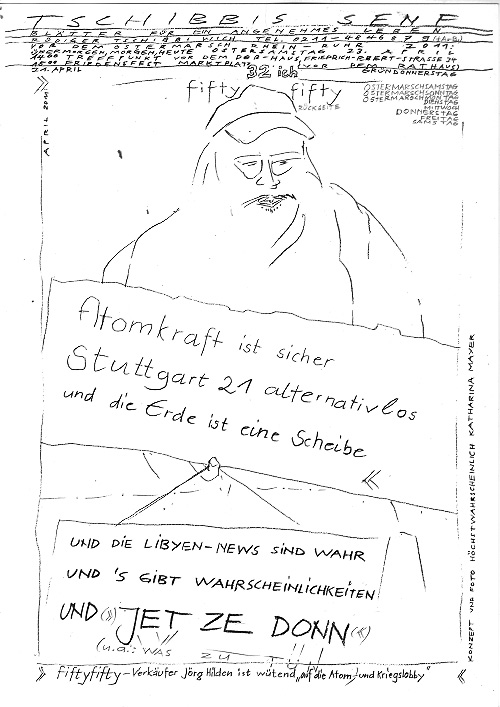 TSCHIBBIS SENF
BLÄTTER FÜR EIN ANGENEHMES LEBEN
VOR DEM OSTERMARSCH RHEIN RUHR 2011:
ÜBERMORGEN, MORGEN, HEUTE OSTERSAMSTAG 23. APRIL
14.00 TREFFPUNKT VOR DEM DGB-HAUS, FRIEDRICH-EBERT-STRASSE 34
FRIEDENSFEST MARKTPLATZ (VOR DEM RATHAUS)
21. APRIL 32 ich GRÜNDONNERSTAG
fifty fifty
RÜCKSEITE
OSTERMARSCHSAMSTAG
OSTERMARSCHSONNTAG
OSTERMARSCHMONTAG
DIENSTAG
MITTWOCH
DONNERSTAG
FREITAG
SAMSTAG
APRIL 2011
Atomkraft ist sicher
Stuttgart 21 alternativlos
und die Erde ist eine Scheibe
UND DIE LIBYEN-NEWS SIND WAHR
UND 'S GIBT WAHRSCHEINLICHKEITEN
UND (») JET ZE DONN («)
(u.a.: WAS ZU TÜ!!
KONZEPT UND FOTO HÖCHSTWAHRSCHEINLICH KATHARINA MAYER
» fiftyfifty-Verkäufer Jörg Hilden ist wütend „auf die Atom- und Kriegslobby" «